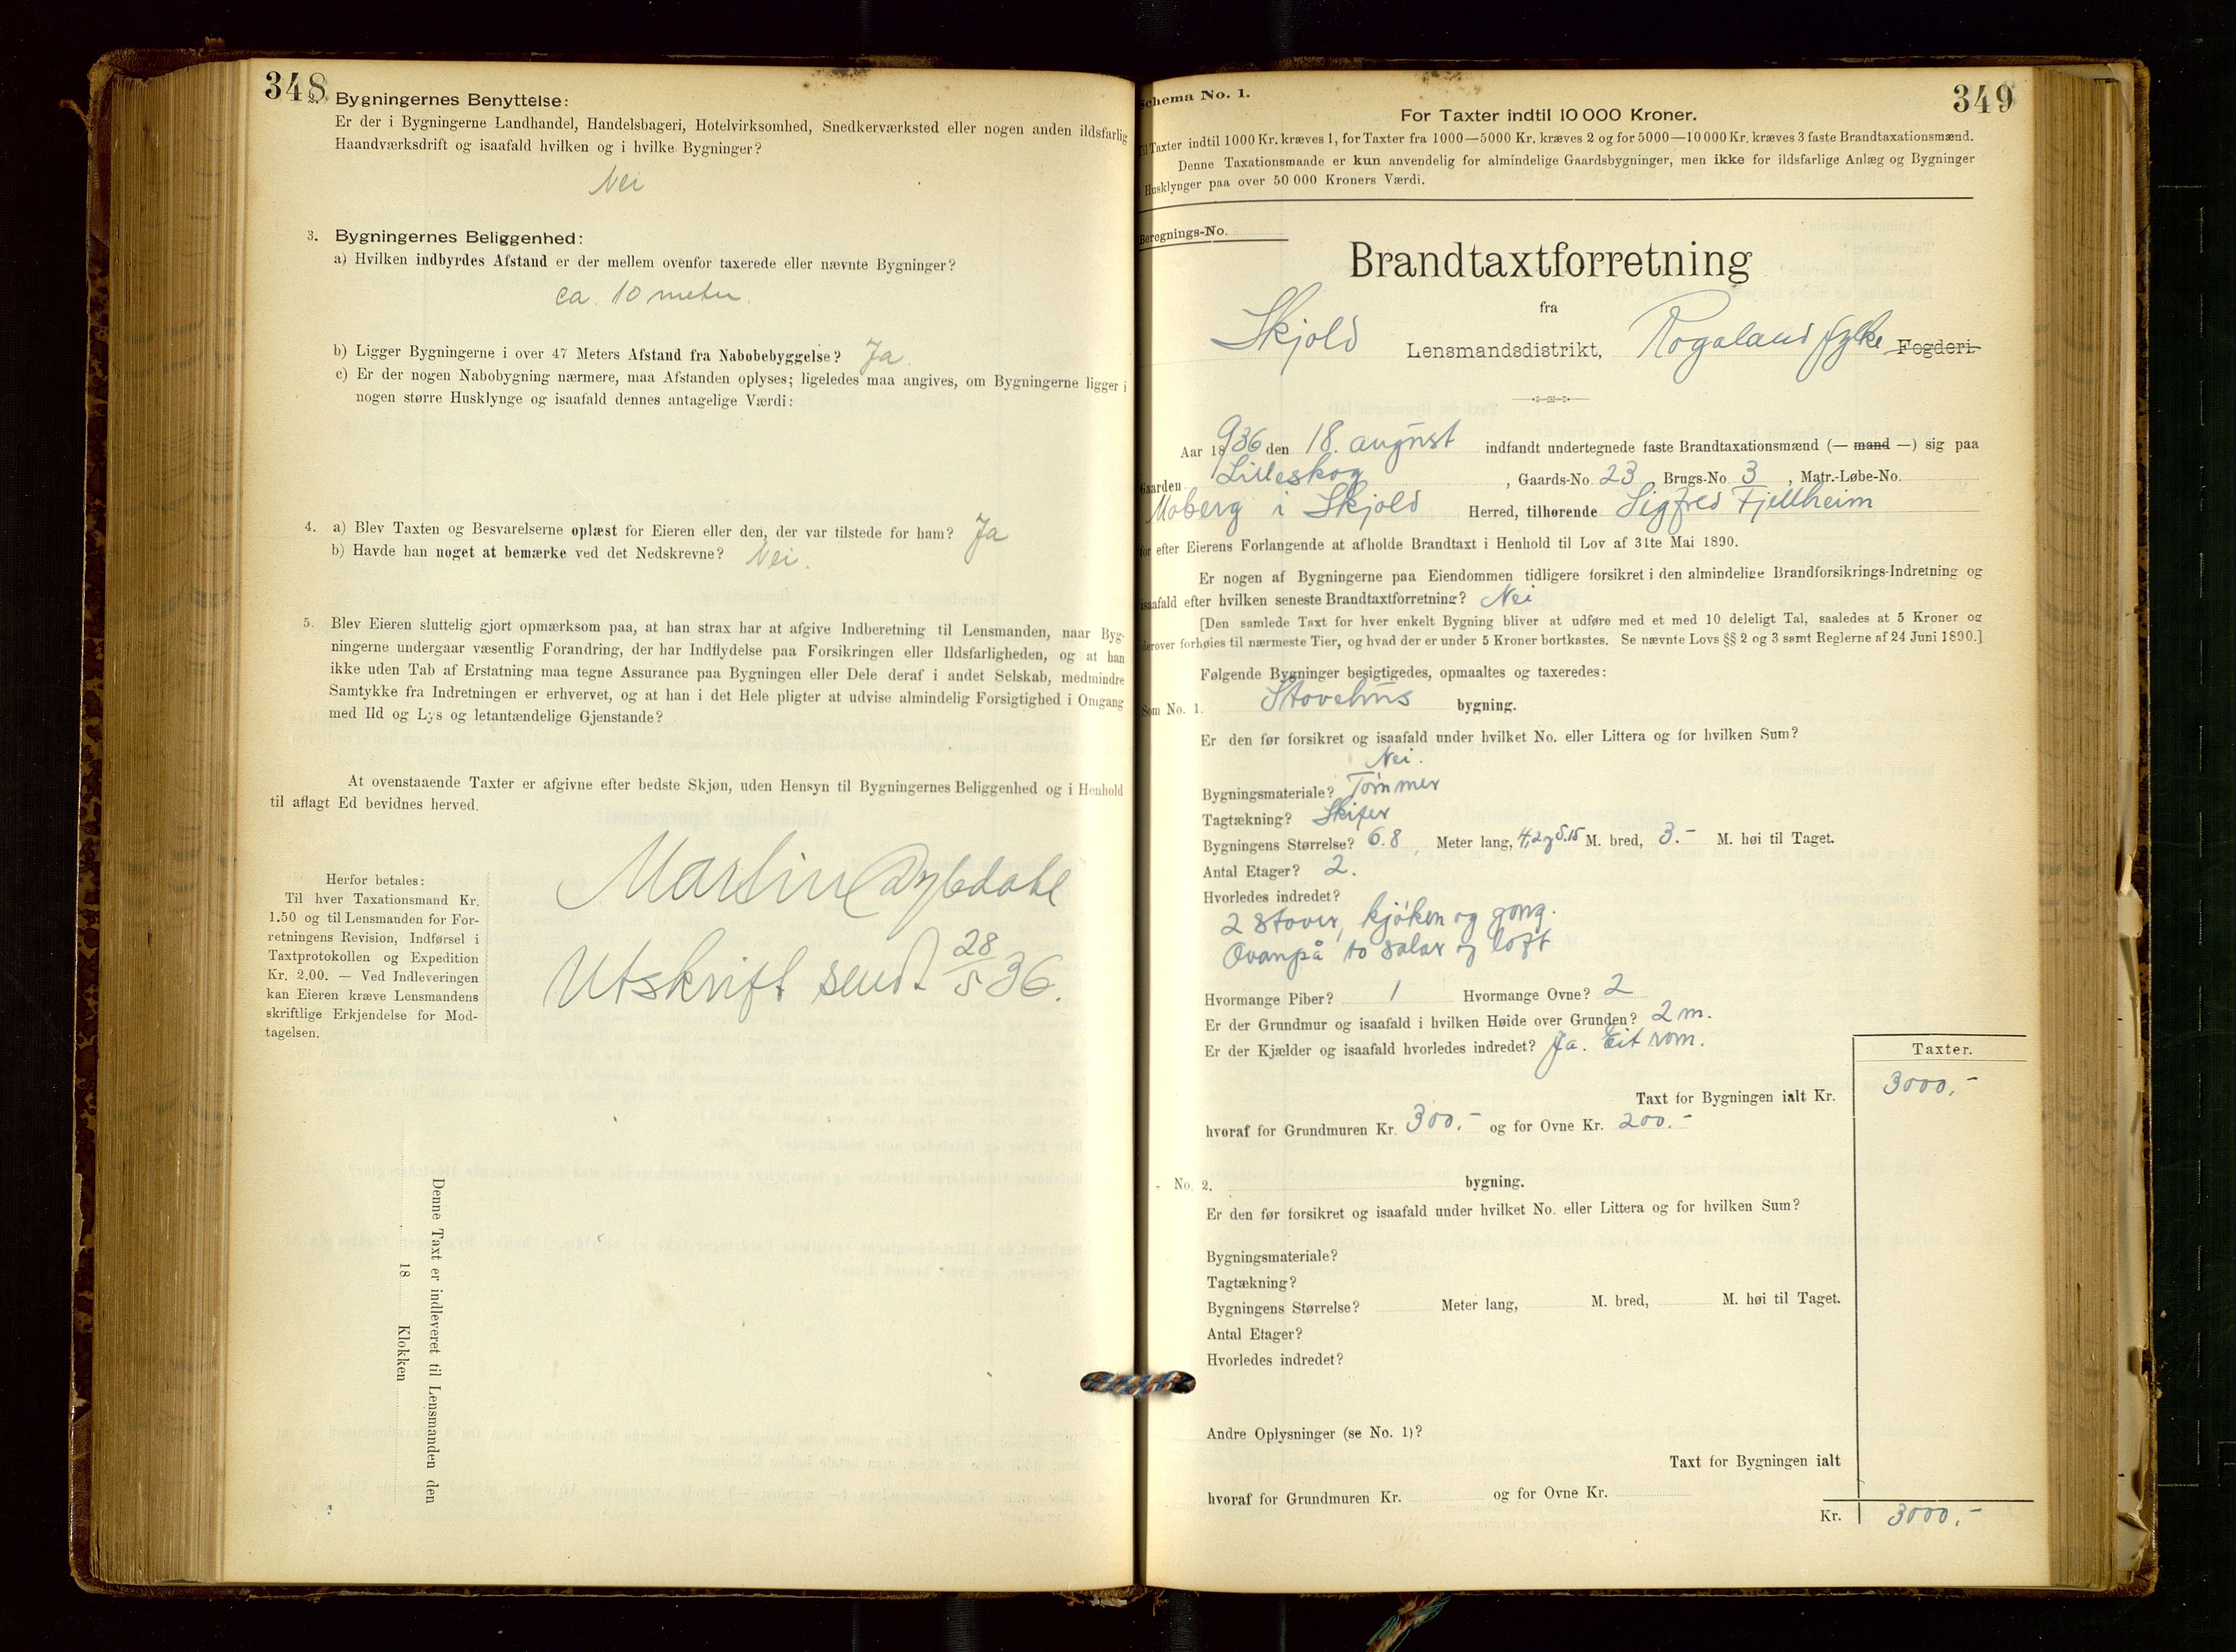 348
2. Bygningernes Benyttelse:
Er der i Bygningerne Landhandel, Handelsbageri, Hotelvirksomhed, Snedkerværksted eller nogen anden ildsfarlig
Haandværksdrift og isaafald hvilken og i hvilke Bygninger?
Nei
3. Bygningernes Beliggenhed:
a) Hvilken indbyrdes Afstand er der mellem ovenfor taxerede eller nævnte Bygninger?
ca. 10 meter.
b) Ligger Bygningerne i over 47 Meters Afstand fra Nabobebyggelse? Ja.
c) Er der nogen Nabobygning nærmere, maa Afstanden oplyses; ligeledes maa angives, om Bygningerne ligger i
nogen større Husklynge og isaafald dennes antagelige Værdi:
4. a) Blev Taxten og Besvarelserne oplæst for Eieren eller den, der var tilstede for ham? Ja
b) Havde han noget at bemærke ved det Nedskrevne? Nei.
5. Blev Eieren sluttelig gjort opmærksom paa, at han strax har at afgive Indberetning til Lensmanden, naar Byg-
ningerne undergaar væsentlig Forandring, der har Indflydelse paa Forsikringen eller Ildsfarligheden, og at han
ikke uden Tab af Erstatning maa tegne Assurance paa Bygningen eller Dele deraf i andet Selskab, medmindre
Samtykke fra Indretningen er erhvervet, og at han i det Hele pligter at udvise almindelig Forsigtighed i Omgang
med Ild og Lys og letantændelige Gjenstande?
At ovenstaaende Taxter er afgivne efter bedste Skjøn, uden Hensyn til Bygningernes Beliggenhed og i Henhold
til aflagt Ed bevidnes herved.
Martin
Utskrift sendt 28/5 36.
Herfor betales:
Til hver Taxationsmand Kr.
1.50 og til Lensmanden for For-
retningens Revision, Indførsel i
Taxtprotokollen og Expedition
Kr. 2.00. — Ved Indleveringen
kan Eieren kræve Lensmandens
skriftlige Erkjendelse for Mod-
tagelsen.
Denne Taxt er indleveret til Lensmanden den
18 Klokken
349
Schema No. 1.
For Taxter indtil 10 000 Kroner.
Til Taxter indtil 1000 Kr. kræves 1, for Taxter fra 1000—5000 Kr. kræves 2 og for 5000—10 000 Kr. kræves 3 faste Brandtaxationsmænd.
Denne Taxationsmaade er kun anvendelig for almindelige Gaardsbygninger, men ikke for ildsfarlige Anlæg og Bygninger
i Husklynger paa over 50 000 Kroners Værdi.
Beregnings-No.
Brandtaxtforretning
fra
Skjold Lensmandsdistrikt, Rogaland fylke Fogderi.
Aar 1936 den 18. august indfandt undertegnede faste Brandtaxationsmænd (— mand —) sig paa
Gaarden Lilleskog, Gaards-No 23 Brugs-No 3, Matr.-Løbe-No.
Moberg i Skjold Herred, tilhørende Sigfred Fjellheim
for efter Eierens Forlangende at afholde Brandtaxt i Henhold til Lov af 31te Mai 1890.
Er nogen af Bygningerne paa Eiendommen tidligere forsikret i den almindelige Brandforsikrings-Indretning og
isaafald efter hvilken seneste Brandtaxtforretning? Nei
[Den samlede Taxt for hver enkelt Bygning bliver at udføre med et med 10 deleligt Tal, saaledes at 5 Kroner og
derover forhøies til nærmeste Tier, og hvad der er under 5 Kroner bortkastes. Se nævnte Lovs §§ 2 og 3 samt Reglerne af 24 Juni 1890.]
Følgende Bygninger besigtigedes, opmaaltes og taxeredes:
Som No. 1. Stovehus bygning.
Er den før forsikret og isaafald under hvilket No. eller Littera og for hvilken Sum?
Nei.
Bygningsmateriale? Tømmer
Tagtækning? Skifer
Bygningens Størrelse? 6.8, Meter lang, 4,2 og 5.15 M. bred, 3.- M. høi til Taget.
Antal Etager? 2.
Hvorledes indredet?
2 stover, kjøken og gong.
Ovanpå to salar og loft
Hvormange Piber? 1 Hvormange Ovne? 2
Er der Grundmur og isaafald i hvilken Høide over Grunden? 2 m.
Er der Kjælder og isaafald hvorledes indredet? Ja. Eit rom.
Taxter.
Taxt for Bygningen ialt Kr. 3000.-
hvoraf for Grundmuren Kr. 300.- og for Ovne Kr. 200.-
- No. 2. bygning.
Er den før forsikret og isaafald under hvilket No. eller Littera og for hvilken Sum?
Bygningsmateriale?
Tagtækning?
Bygningens Størrelse? Meter lang, M. bred, M. høi til Taget.
Antal Etager?
Hvorledes indredet?
Andre Oplysninger (se No. 1)?
Taxt for Bygningen ialt
hvoraf for Grundmuren Kr. og for Ovne Kr.
Kr. 3000.-